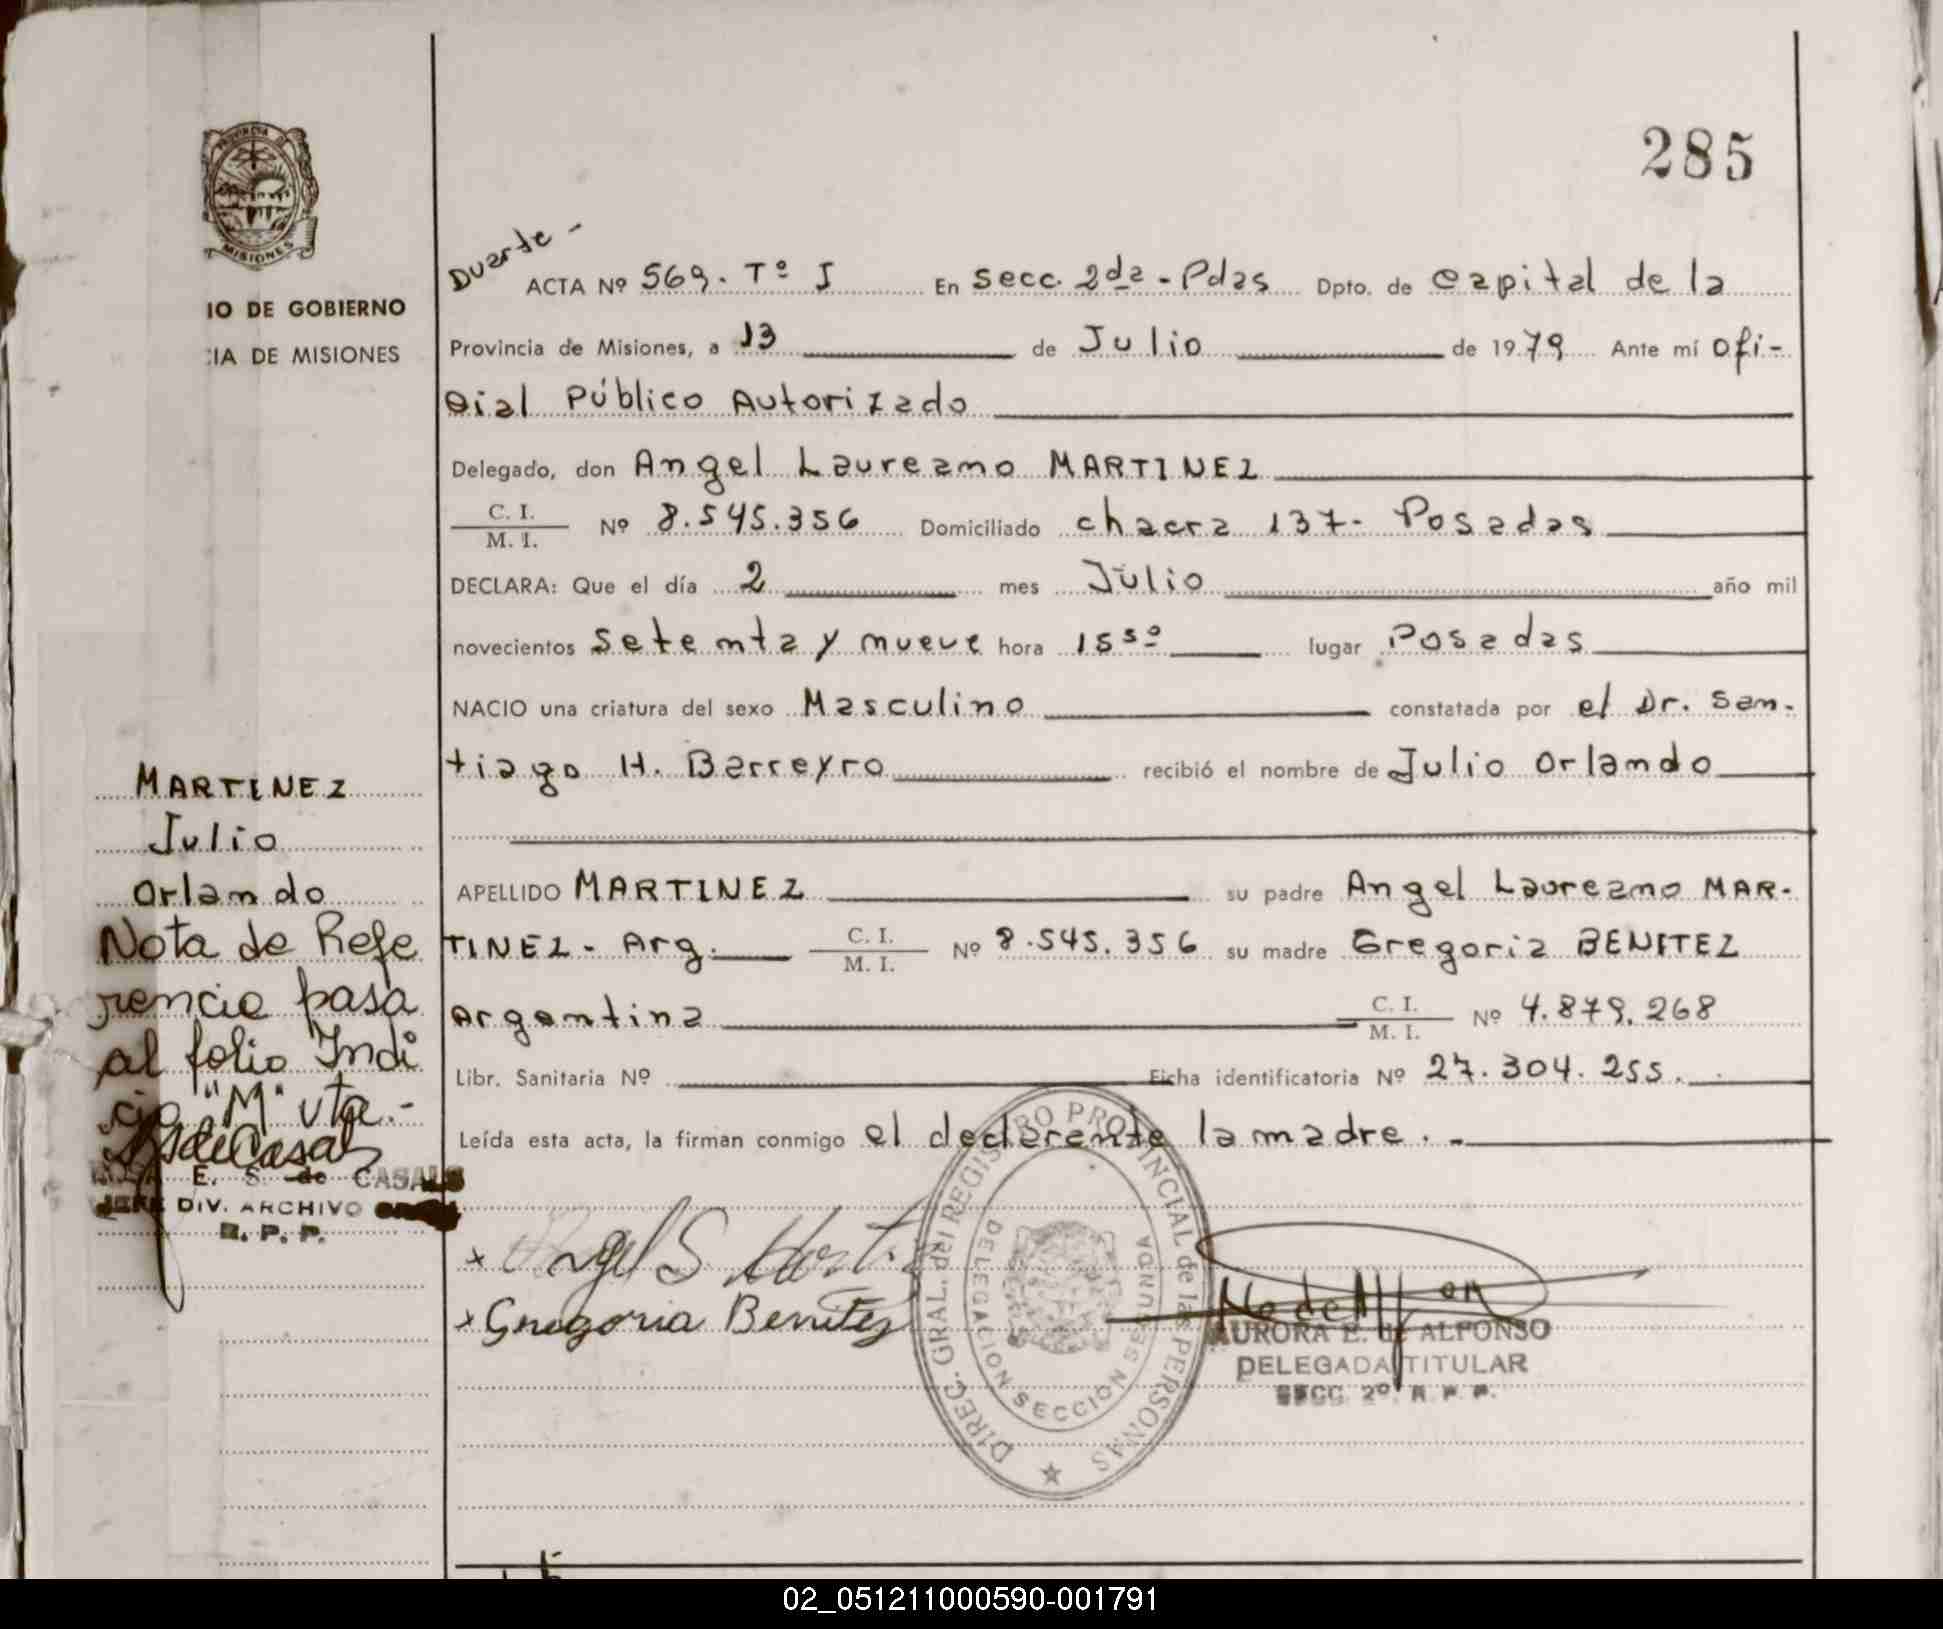 285
PROVINCIA DE
MISIONES
IO DE GOBIERNO
IA DE MISIONES
Duarte -
ACTA Nº 569. Tº I En Secc. 2da - Pdas Dpto. de Capital de la
Provincia de Misiones, a 13 de Julio de 1979 Ante mí ofi-
cial Público Autorizado
Delegado, don Angel Laureano MARTINEZ
C. I.
M. I. Nº 8.545.356 Domiciliado chacra 137- Posadas
DECLARA: Que el día 2 mes Julio año mil
novecientos setenta y nueve hora 15 50 lugar Posadas
NACIO una criatura del sexo Masculino constatada por el Dr. San-
tiago H. Barreyro recibió el nombre de Julio Orlando
APELLIDO MARTINEZ su padre Angel Laureano MAR-
TINEZ - Arg. C. I. M. I. Nº 8.545.356 su madre Gregoria BENITEZ
Argentina C. I. M. I. Nº 4.879.268
Libr. Sanitaria Nº Ficha identificatoria Nº 27.304.255.
Leída esta acta, la firman conmigo el declarente la madre . -
MARTINEZ
Julio
Orlando
Nota de Refe
rencia pasa
al folio Indi
cio "M" vta.-
E. S. de CASALS
JEFE DIV. ARCHIVO
R. P. P.
x Angel
x Gregoria Benitez
DIREC. GRAL. del REGISTRO PROVINCIAL de las PERSONAS
DELEGACION SECCION SEGUNDA
AURORA E. de ALFONSO
DELEGADA TITULAR
SECC. 2º R. P. P.
02_051211000590-001791